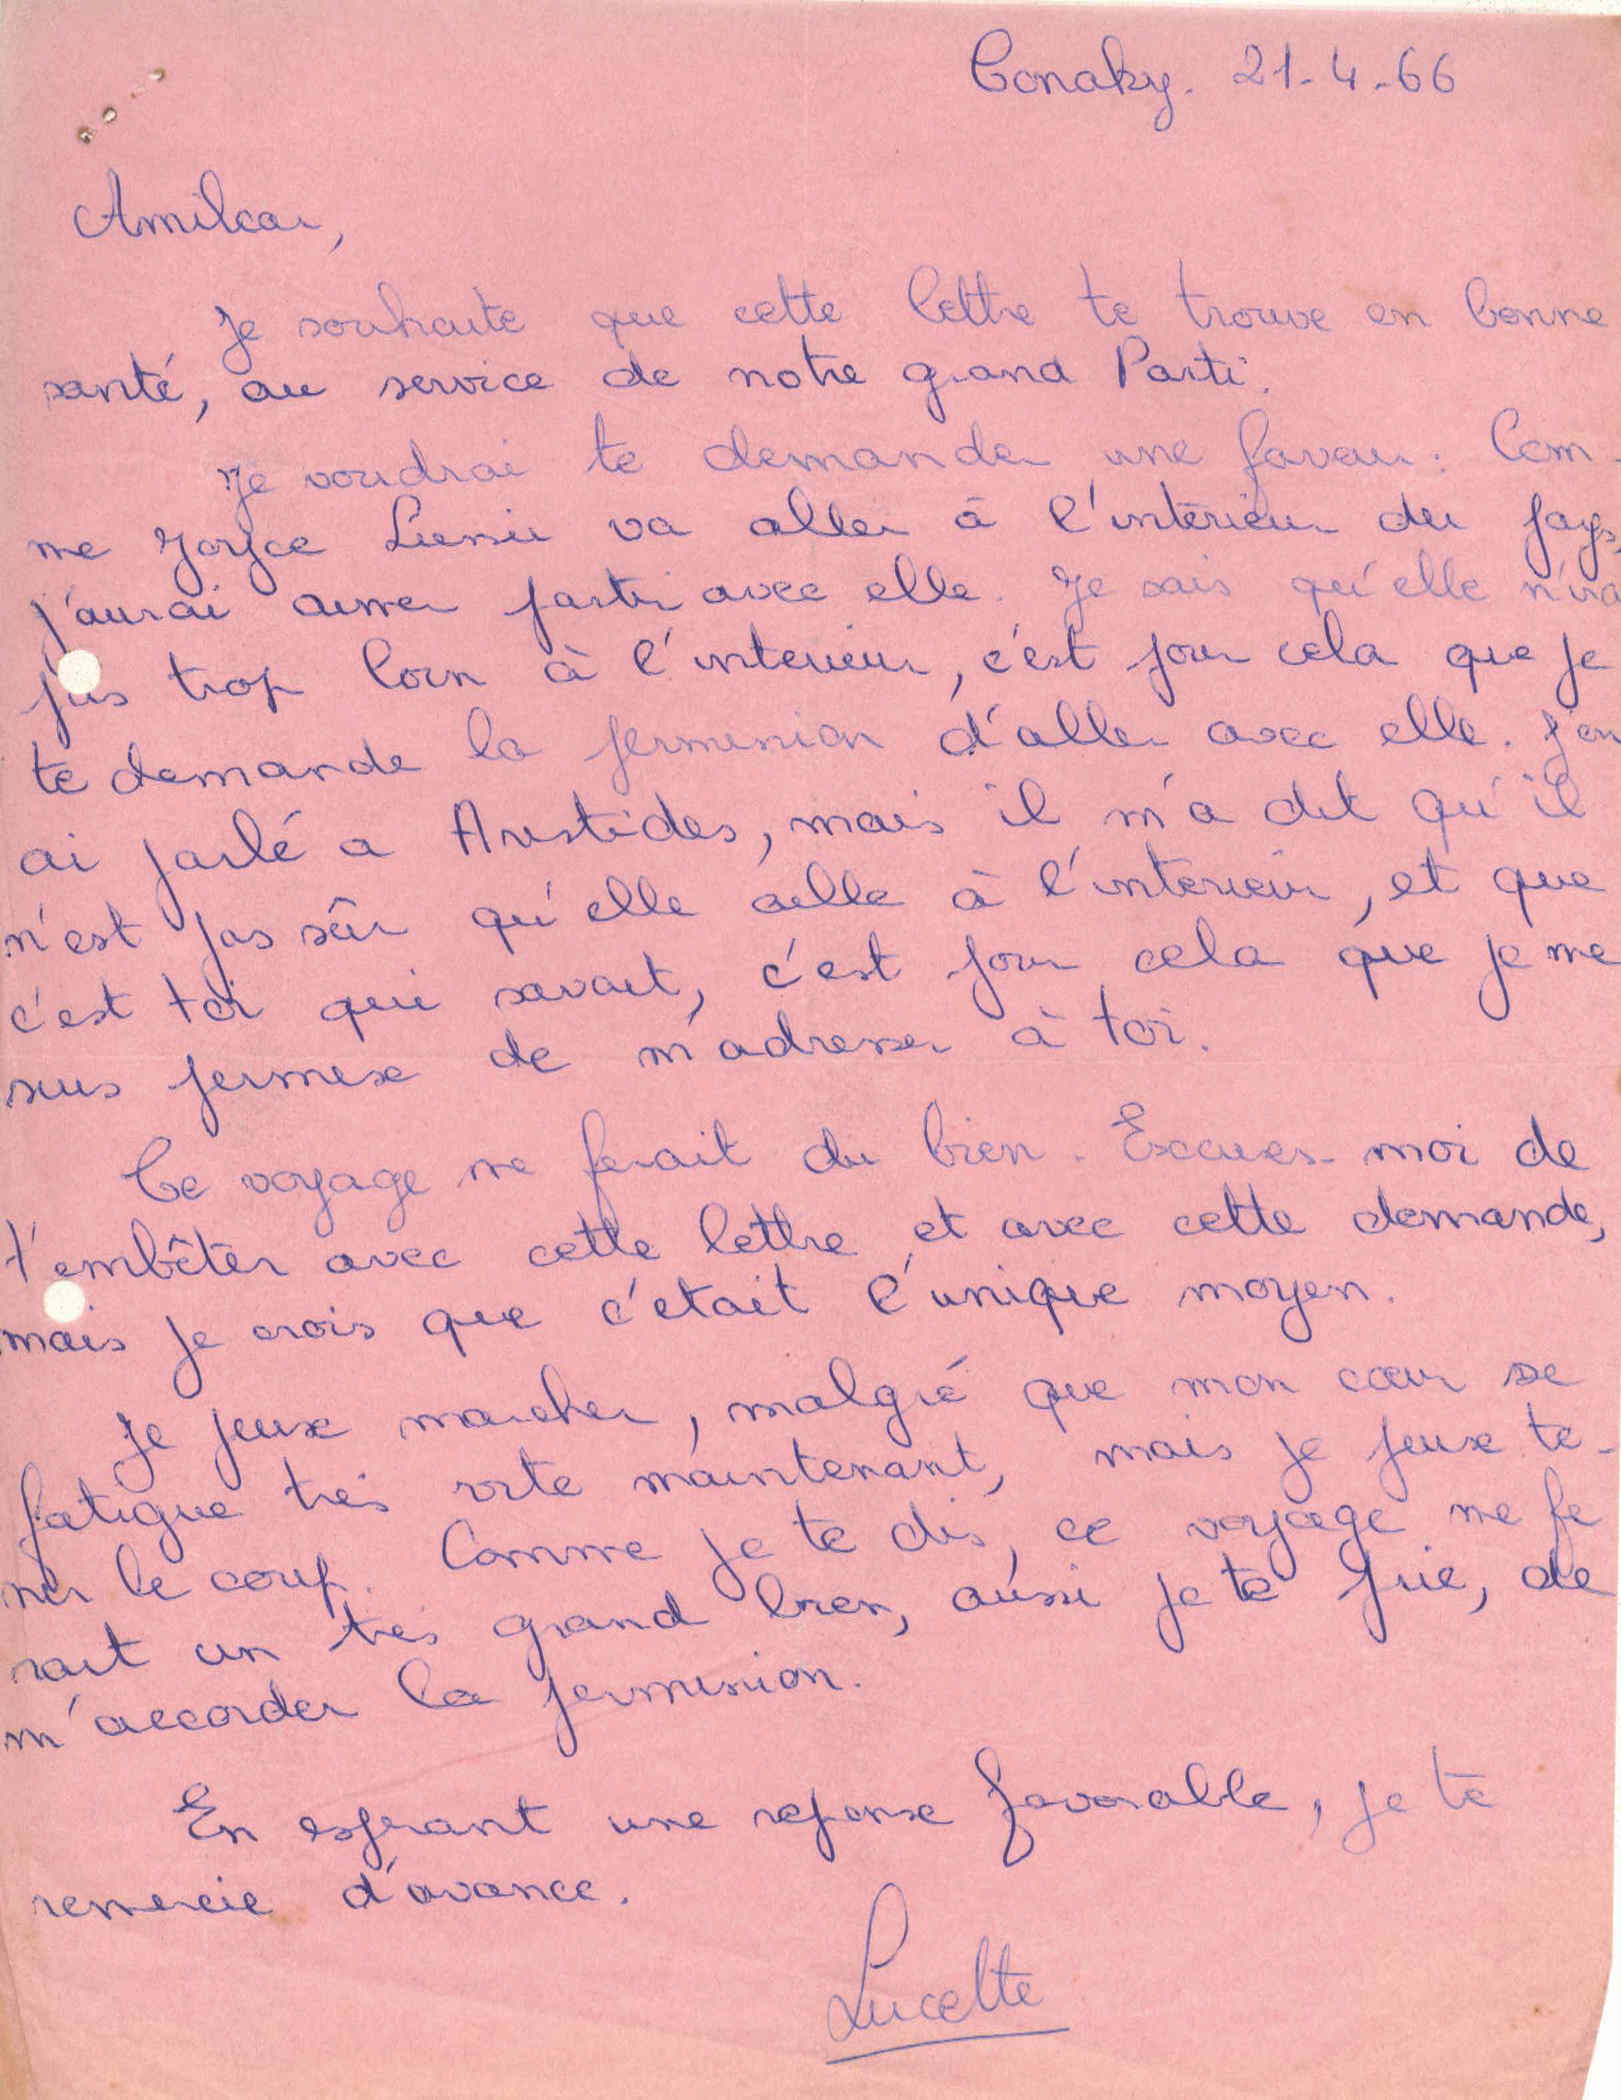 Conaky. 21-4-66
Amilcar,
Je souhaite que cette lettre te trouve en bonne
santé, au service de notre grand Parti.
Je voudrai te demander une faveur. Com-
me Joyce Lussu va aller à l'intérieur du pays,
j'aurai aimer partir avec elle. Je sais qu'elle n'ira
pas trop loin à l'interieur, c'est pour cela que je
te demande la permission d'aller avec elle. J'en
ai parlé a Aristides, mais il m'a dit qu'il
n'est pas sûr qu'elle aille à l'interieur, et que
c'est toi qui savait, c'est pour cela que je me
suis permise de m'adresser à toi.
Ce voyage me ferait du bien. Excuses-moi de
t'embêter avec cette lettre et avec cette demande,
mais je crois que c'etait l'unique moyen.
Je peux marcher, malgré que mon cœur se
fatigue très vite maintenant, mais je peux te-
nir le coup. Comme je te dis, ce voyage me fe
rait un très grand bien, aussi je te prie, de
m'accorder la permission.
En esperant une reponse favorable, je te
remercie d'avance.
Lucette